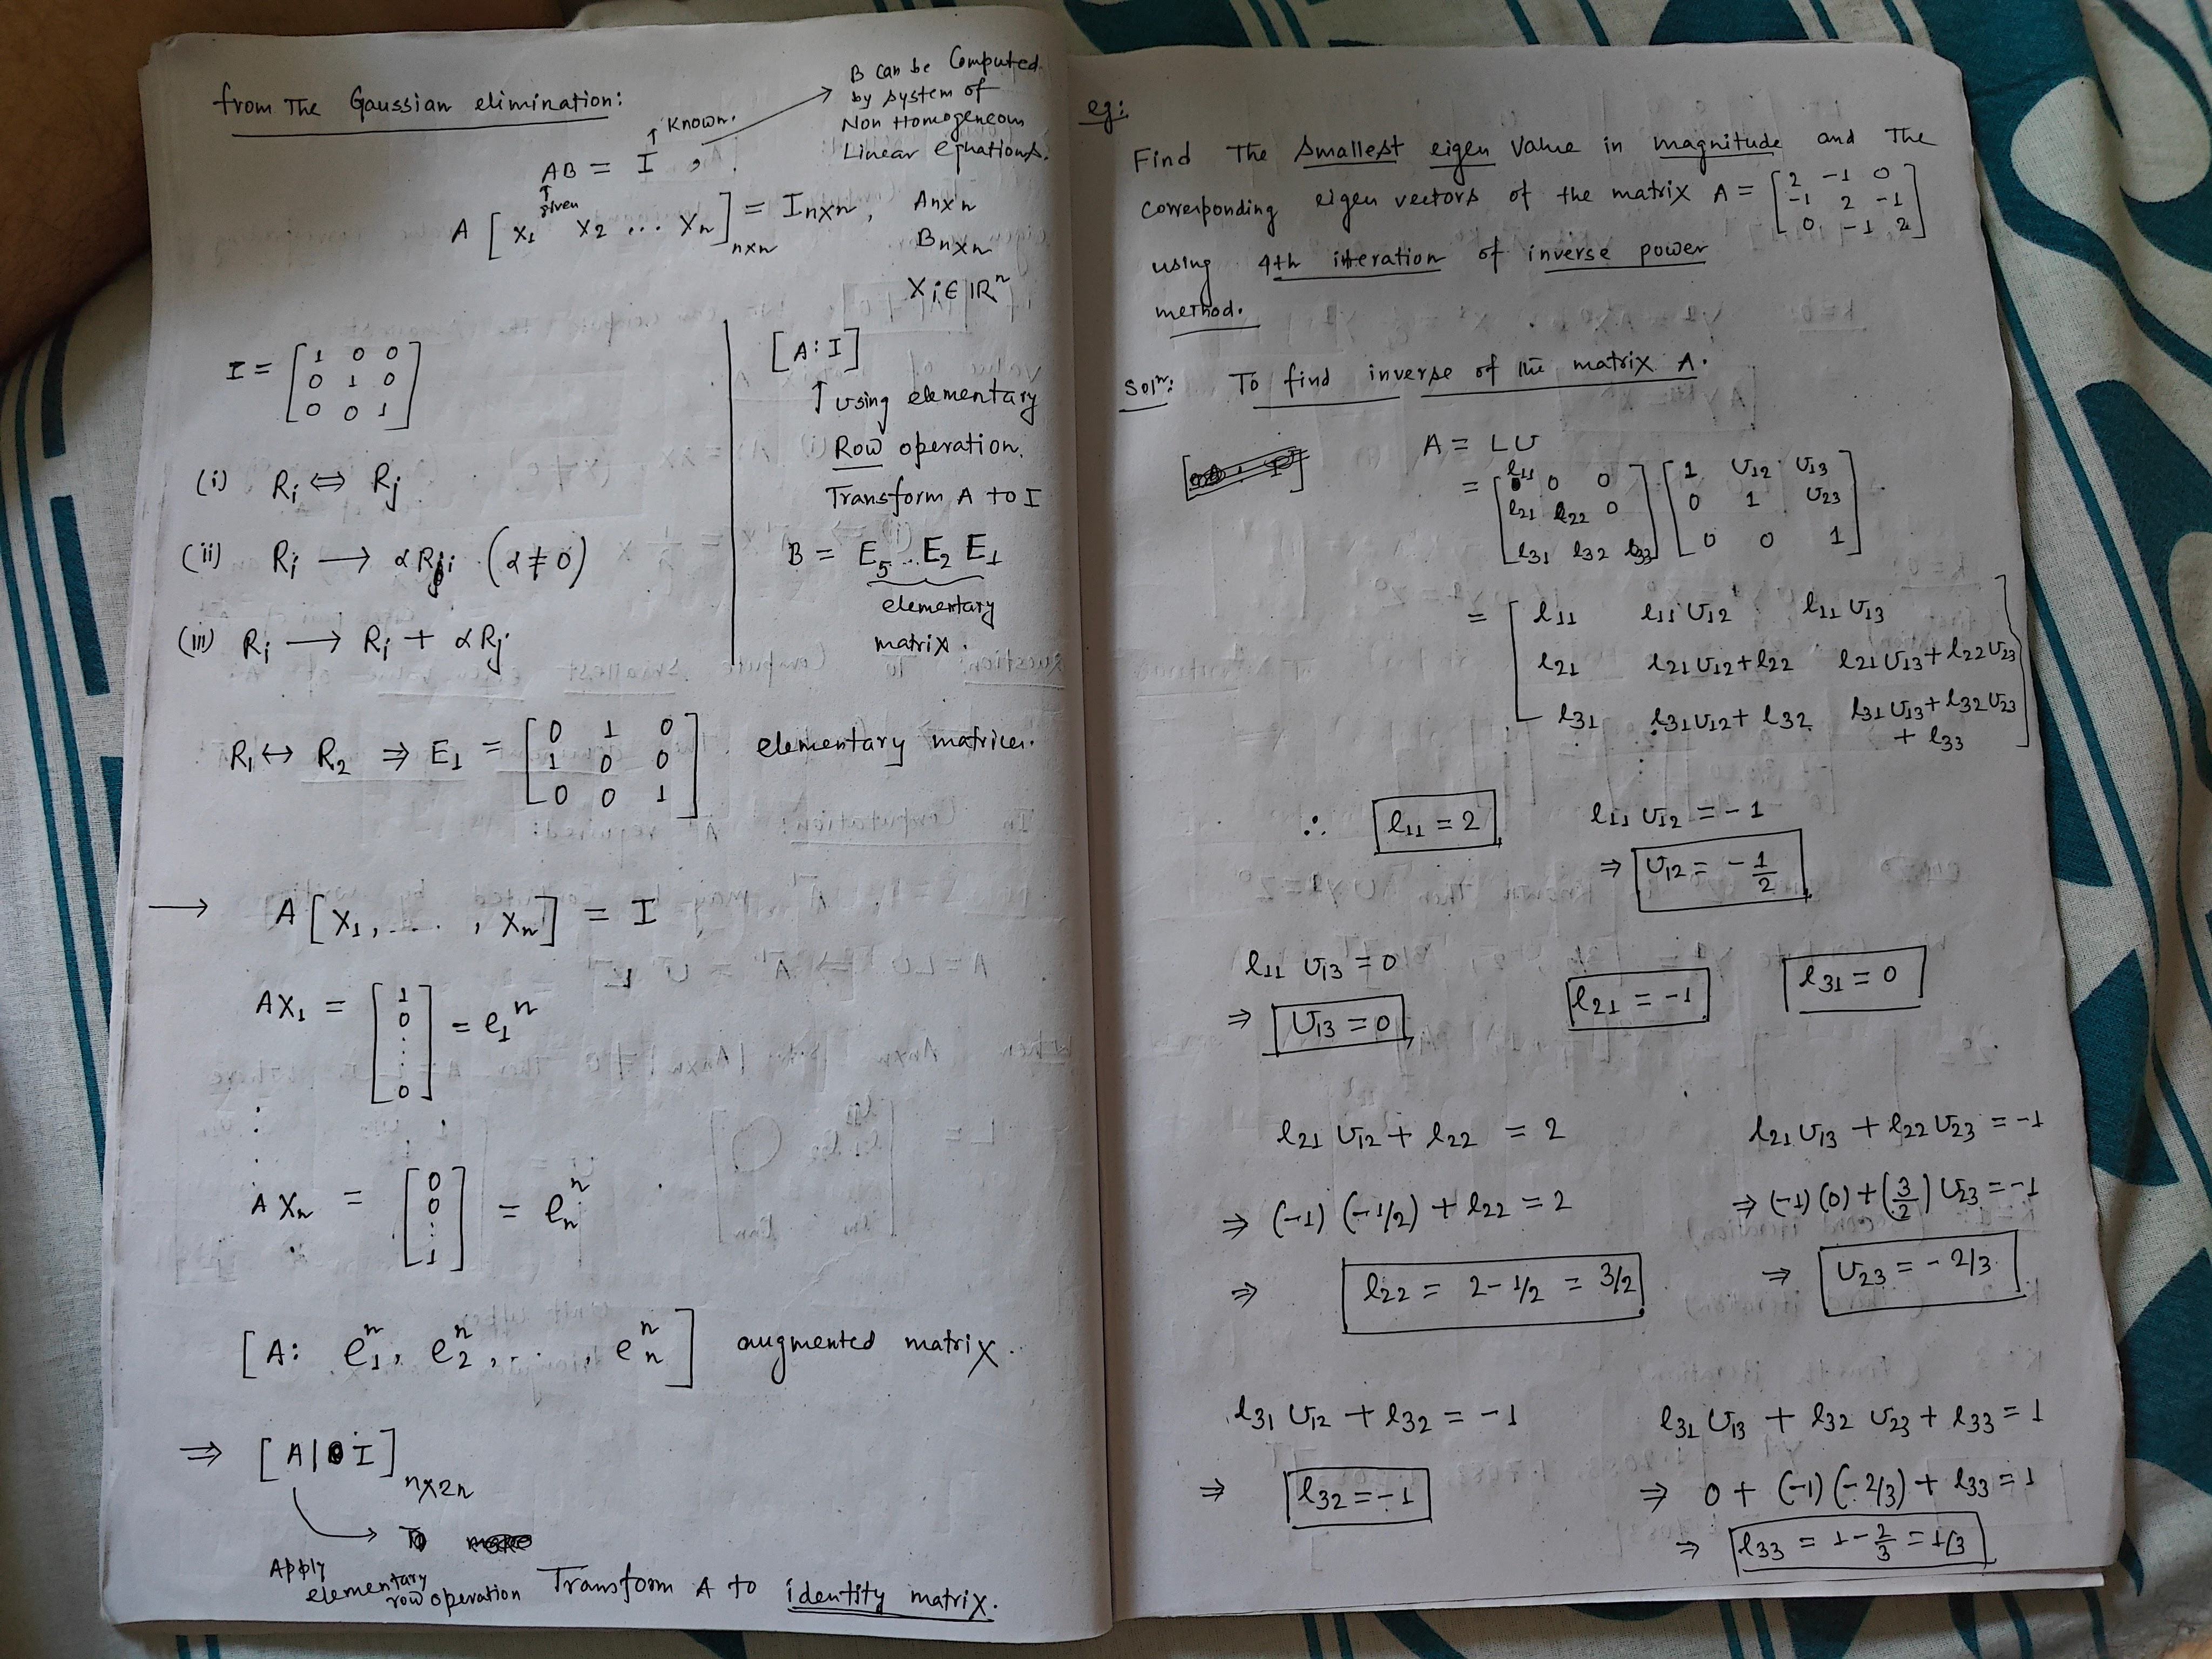 from The Gaussian elimination:
AB = I ,
↑ given
↑ Known.
B can be Computed
by system of
Non Homogeneous
Linear equations.
A [ X1 X2 ... Xn ]n×n = In×n , An×n
Bn×n
Xi ∈ ℝⁿ
I = [ 1 0 0
0 1 0
0 0 1 ]
(i) Ri ⇔ Rj
(ii) Ri ⟶ αRi (α ≠ 0)
(iii) Ri ⟶ Ri + αRj
[A : I]
↑ using elementary
Row operation.
Transform A to I
B = E5 .. E2 E1
elementary
matrix.
R1 ↔ R2 ⇒ E1 = [ 0 1 0
1 0 0
0 0 1 ] elementary matrices.
⟶ A [X1, ...., Xn] = I
AX1 = [ 1
0
⋮
0 ] = e1ⁿ
⋮
AXn = [ 0
0
⋮
1 ] = enⁿ
[A: e1ⁿ, e2ⁿ, ..., enⁿ] augmented matrix.
⇒ [A | I] n×2n
Apply
elementary
row operation Transform A to identity matrix.
eg:
Find The smallest eigen value in magnitude and The
corresponding eigen vectors of the matrix A = [ 2 -1 0
-1 2 -1
0 -1 2 ]
using 4th iteration of inverse power
method.
Solⁿ: To find inverse of the matrix A.
A = LU
= [ l11 0 0
l21 l22 0
l31 l32 l33 ] [ 1 U12 U13
0 1 U23
0 0 1 ]
= [ l11 l11 U12 l11 U13
l21 l21 U12 + l22 l21 U13 + l22 U23
l31 l31 U12 + l32 l31 U13 + l32 U23
+ l33 ]
∴ l11 = 2 l11 U12 = -1
⇒ U12 = - 1/2
l11 U13 = 0 l21 = -1 l31 = 0
⇒ U13 = 0
l21 U12 + l22 = 2 l21 U13 + l22 U23 = -1
⇒ (-1) (-1/2) + l22 = 2 ⇒ (-1) (0) + (3/2) U23 = -1
⇒ l22 = 2 - 1/2 = 3/2 ⇒ U23 = - 2/3
l31 U12 + l32 = -1 l31 U13 + l32 U23 + l33 = 1
⇒ l32 = -1 ⇒ 0 + (-1) (-2/3) + l33 = 1
⇒ l33 = 1 - 2/3 = 1/3